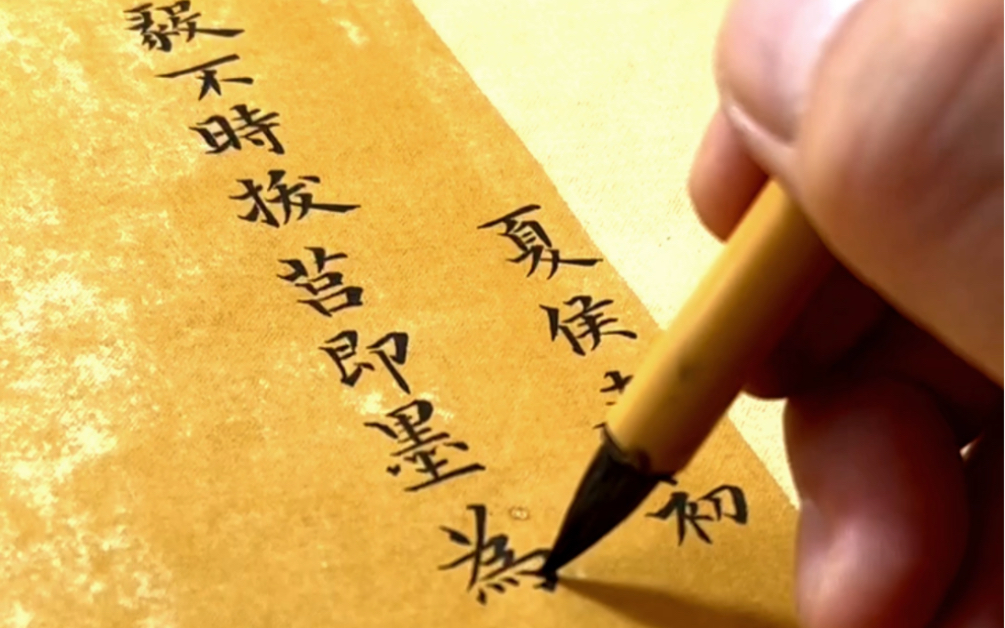 夏侯初
毅不時拔莒即墨為